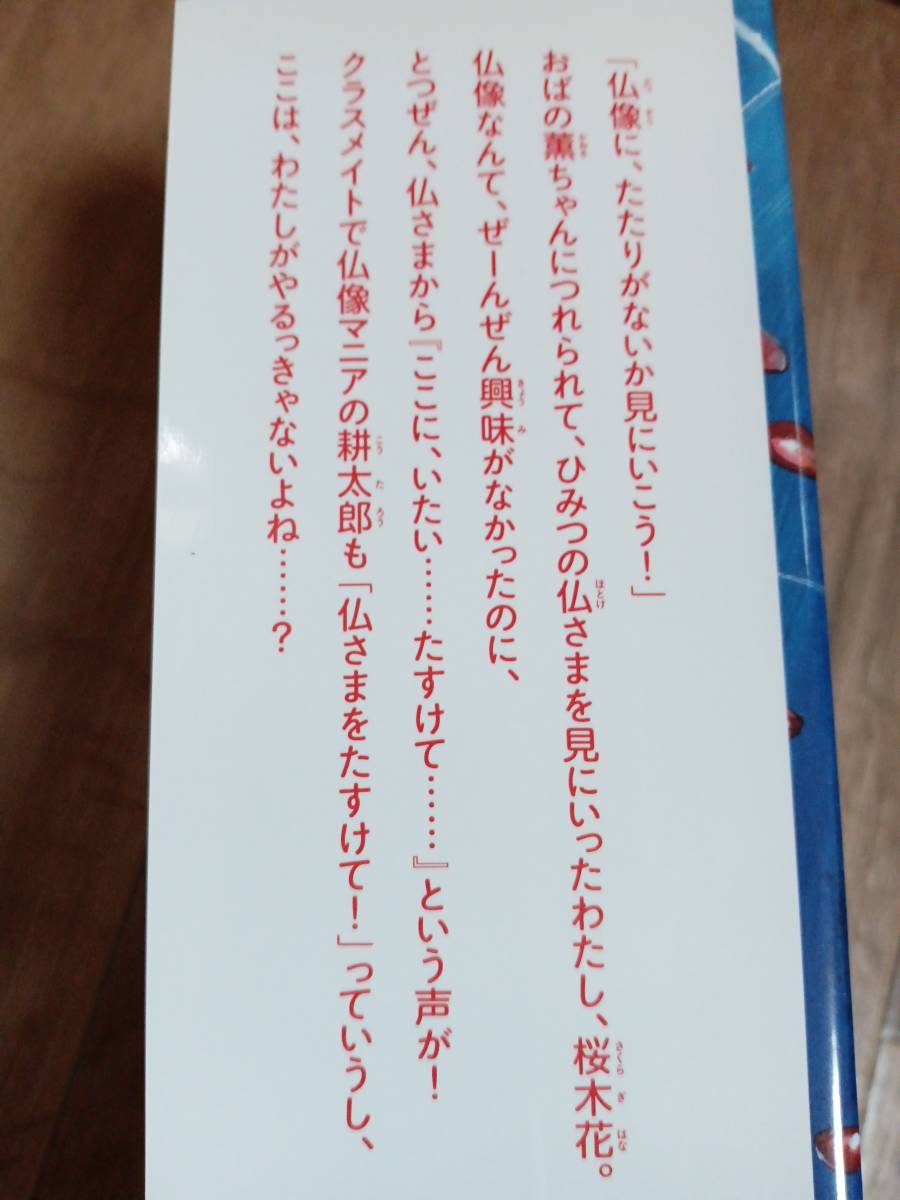 「仏像に、たたりがないか見にいこう！」
おばの薫ちゃんにつれられて、ひみつの仏さまを見にいったわたし、桜木花。
仏像なんて、ぜーんぜん興味がなかったのに、
とつぜん、仏さまから『ここに、いたい……たすけて……』という声が！
クラスメイトで仏像マニアの耕太郎も「仏さまをたすけて！」っていうし、
ここは、わたしがやるっきゃないよね……？